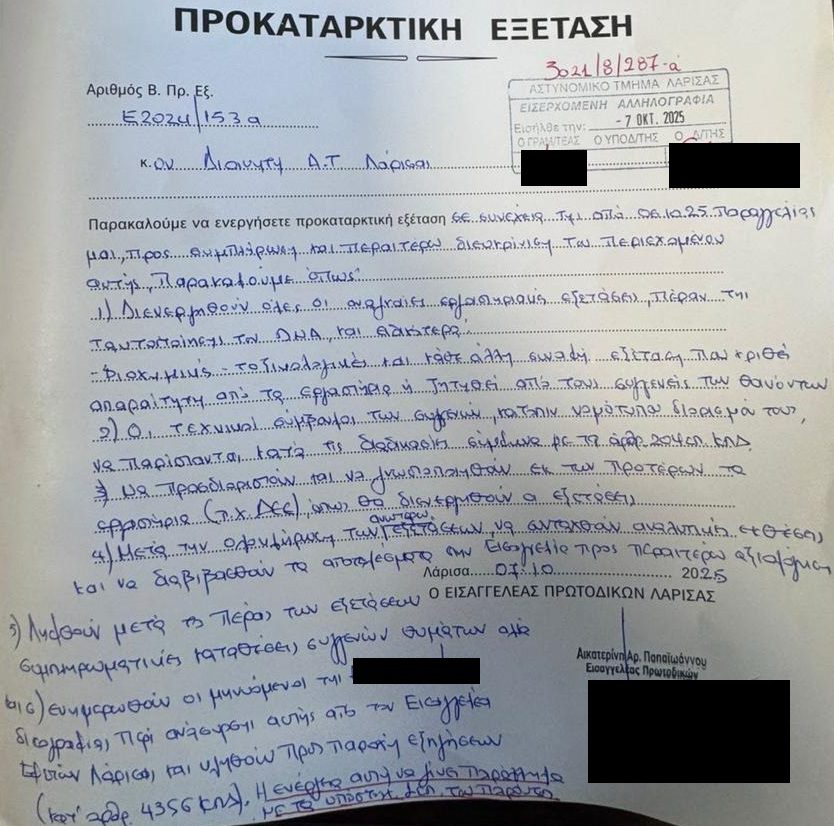 ΠΡΟΚΑΤΑΡΚΤΙΚΗ ΕΞΕΤΑΣΗ
3021/8/287-α
Αριθμός Β. Πρ. Εξ.
Ε2024/153α
ΑΣΤΥΝΟΜΙΚΟ ΤΜΗΜΑ ΛΑΡΙΣΑΣ
ΕΙΣΕΡΧΟΜΕΝΗ ΑΛΛΗΛΟΓΡΑΦΙΑ
Εισήλθε την: - 7 ΟΚΤ. 2025
Ο ΓΡΑΜ/ΤΕΑΣ Ο ΥΠΟΔ/ΤΗΣ Ο Δ/ΤΗΣ
κ. ον Διοικητή Α.Τ. Λάρισας
Παρακαλούμε να ενεργήσετε προκαταρκτική εξέταση σε συνέχεια της από 06.10.25 Παραγγελίας
μας, προς συμπλήρωση και περαιτέρω διευκρίνιση του περιεχομένου
αυτής, Παρακαλούμε όπως:
1) Διενεργηθούν όλες οι αναγκαίες εργαστηριακές εξετάσεις, πέραν της
ταυτοποίησης του DNA, και ειδικότερα:
- βιοχημικές - τοξικολογικές και κάθε άλλη συναφή εξέταση που κριθεί
απαραίτητη από τα εργαστήρια ή ζητηθεί από τους συγγενείς των θανόντων
2) Οι τεχνικοί σύμβουλοι των συγγενών, κατόπιν νομότυπου διορισμού τους,
να παρίστανται κατά τις διαδικασίες σύμφωνα με τα άρθρ. 204 επ ΚΠΔ.
3) Να προσδιοριστούν και να γνωστοποιηθούν εκ των προτέρων τα
εργαστήρια (π.χ. ΔΕΕ), όπου θα διενεργηθούν οι εξετάσεις
4) Μετά την ολοκλήρωση των ανωτέρω εξετάσεων, να συνταχθούν αναλυτικές εκθέσεις
και να διαβιβασθούν τα αποτελέσματα στην Εισαγγελία προς περαιτέρω αξιολόγηση
Λάρισα 07.10 2025
Ο ΕΙΣΑΓΓΕΛΕΑΣ ΠΡΩΤΟΔΙΚΩΝ ΛΑΡΙΣΑΣ
Αικατερίνη Αρ. Παπαϊωάννου
Εισαγγελέας Πρωτοδικών
5) Ληφθούν μετά το πέρας των εξετάσεων
συμπληρωματικές καταθέσεις συγγενών θυμάτων
6) ενημερωθούν οι μηνυόμενοι της
δικογραφίας περί ανάσυρσης αυτής από την Εισαγγελία
Εφετών Λάρισας και κληθούν προς παροχή εξηγήσεων
(κατ' άρθρ. 43§6 ΚΠΔ). Η ενέργεια αυτή να γίνει παράλληλα
με τα υπόλοιπα του παρόντος.